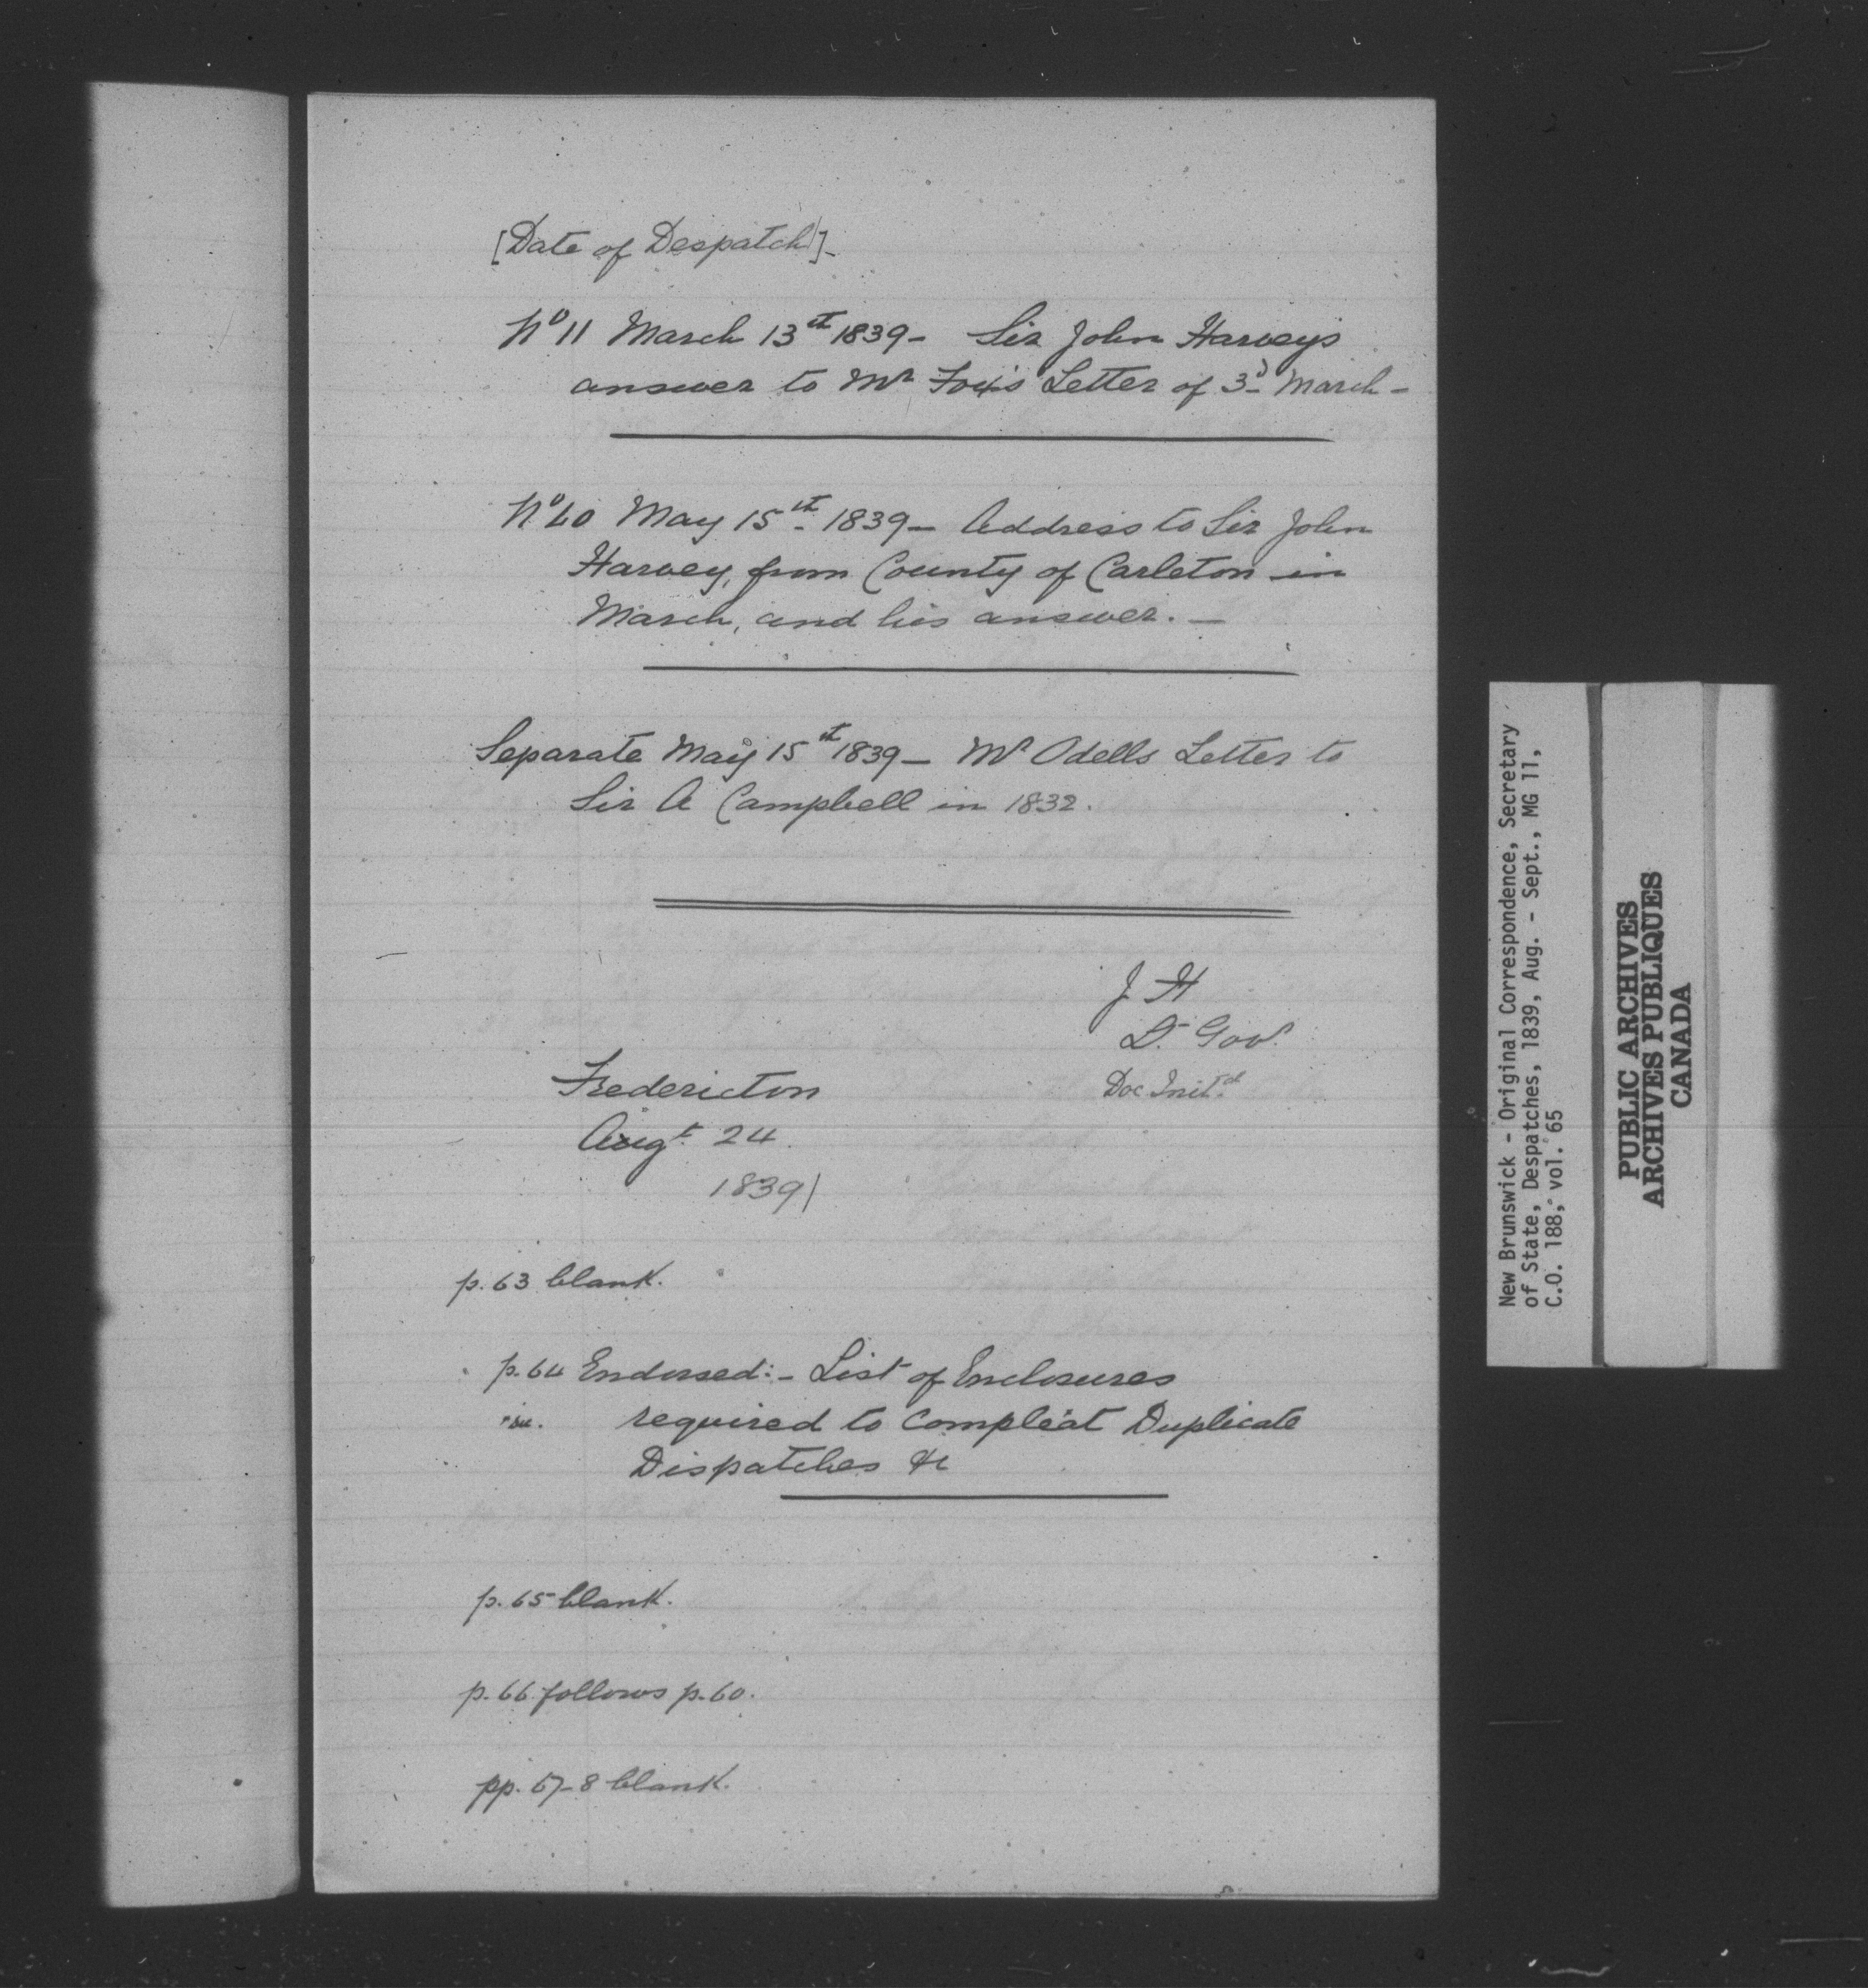 [Date of Despatch]-
No 11 March 13th 1839- Sir John Harvey's
answer to Mr Fox's Letter of 3d March-
No 40 May 15th 1839- Address to Sir John
Harvey, from County of Carleton in
March, and his answer.-
Separate May 15th 1839- Mr Odells Letter to
Sir A Campbell in 1832.
J H
Lt Govr
Doc Initd
Fredericton
Augt 24
1839/
p. 63 blank.
p. 64 Endorsed:- List of Enclosures
required to Compleat Duplicate
Dispatches &c
p. 65 blank.
p. 66 follows p. 60.
pp. 67-8 blank.
New Brunswick - Original Correspondence, Secretary
of State, Despatches, 1839, Aug. - Sept., MG 11,
C.O. 188, vol. 65
PUBLIC ARCHIVES
ARCHIVES PUBLIQUES
CANADA